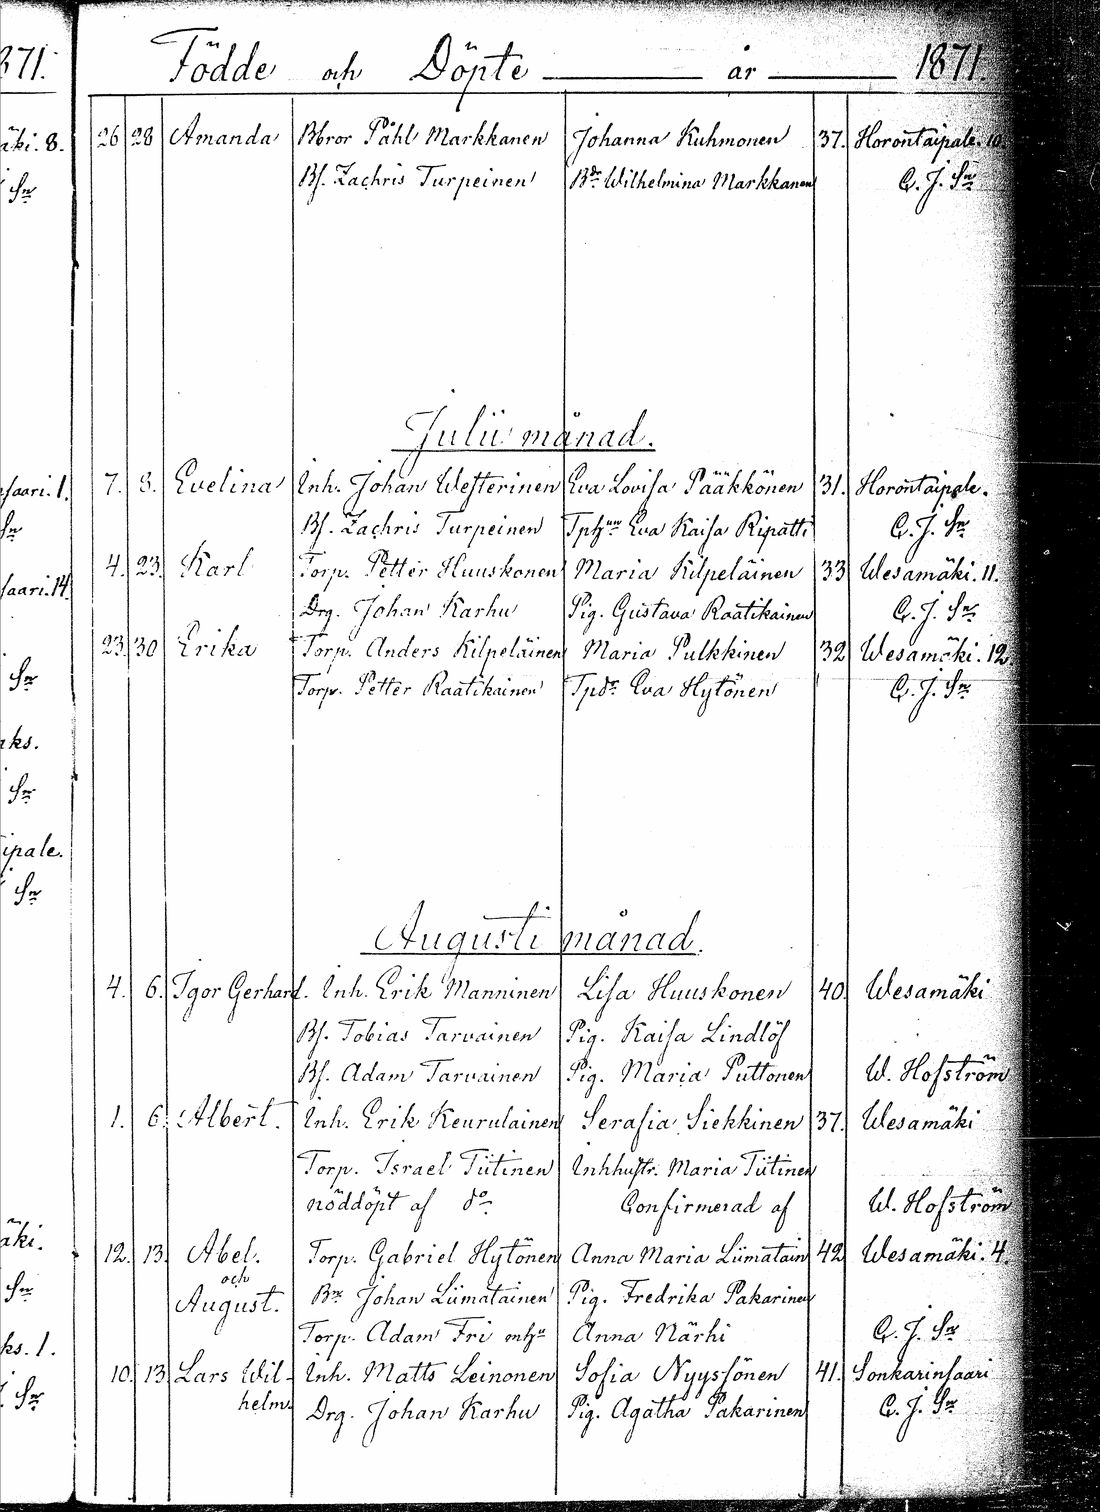 871.
Födde och Döpte år 1871.
äki. 8.
26 28 Amanda Bbror Påhl Markkanen Johanna Kuhmonen 37. Horontaipale. 10.
Sn
Bf. Zachris Turpeinen Bdr Wilhelmina Markkanen C. J. Sn
Julii månad.
saari. 1. 7. 8. Evelina Inh. Johan Westerinen Eva Lovisa Pääkkönen 31. Horontaipale.
Sn Bf. Zachris Turpeinen Eva Kaisa Ripatti C. J. Sn
saari. 14. 4. 23. Karl Torp. Petter Huuskonen Maria Kilpeläinen 33 Wesamäki. 11.
Drg. Johan Karhu Pig. Gustava Raatikainen C. J. Sn
23. 30 Erika Torp. Anders Kilpeläinen Maria Pulkkinen 32 Wesamäki. 12.
Sn Torp. Petter Raatikainen Tpdr Eva Hytönen C. J. Sn
aks.
Sn
ipale.
Sn
Augusti månad.
4. 6. Igor Gerhard. Inh. Erik Manninen Lisa Huuskonen 40. Wesamäki
Bf. Tobias Tarvainen Pig. Kaisa Lindlöf
Bf. Adam Tarvainen Pig. Maria Puttonen W. Hofström
1. 6. Albert. Inh. Erik Keurulainen Serafia Siekkinen 37. Wesamäki
Torp. Israel Tiitinen Inhhustr. Maria Tiitinen
nöddöpt af do Confirmerad af W. Hofström
äki. 12. 13. Abel. Torp. Gabriel Hytönen Anna Maria Liimatain 42 Wesamäki. 4.
och
Sn August. Johan Liimatainen Pig. Fredrika Pakarinen
Torp. Adam Fri Anna Närhi C. J. Sn
ks. 1. 10. 13 Lars Wil- Inh. Matts Leinonen Sofia Nyyssönen 41. Sonkarinsaari
Sn helm. Drg. Johan Karhu Pig. Agatha Pakarinen C. J. Sn